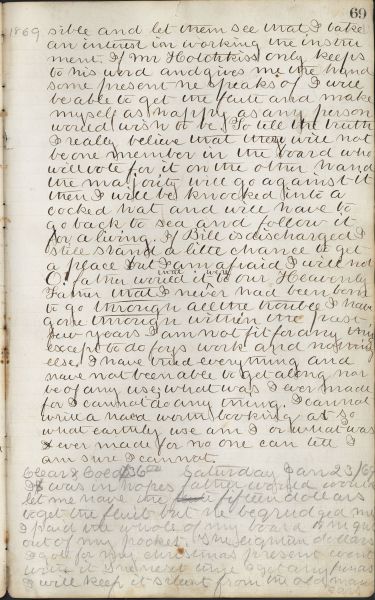 69
1869 sible and let them see that I take
an interest in working the instru
ment. If Mr Hotchkiss only keeps
to his word and gives me the hand
some present he speaks of I will
be able to get the flute and make
myself as happy as any person
would wish to be. To tell the truth
I really believe that they will not
be one member in the board who
will vote for it on the other hand
the majority will go against it
then I will be knocked into a
cocked hat and will have to
go back to sea and follow it
for a living. If Bill is discharged I
still stand a little chance to get
a place but I am afraid I will not
O! father would it to our Heavenly
that were
Father that I never had been born
to go through all the trouble I have
gone through within the past
few years I am not fit for any thing
except to do boys work and nothing
else. I have tried everything and
have not been able to get along nor
be of any use; what was I ever made
for I cannot do any thing. I cannot
write a hand worth looking at so
what earthly use am I or what was
I ever made for no one can tell I
am sure I cannot.
Clear & Cold 36 Saturday Jan 23/69
I was in hopes father would
let me have the fifteen dollars
to get the flute but he begrudged me
I paid the whole of my board
out of my pocket. The eighteen dollars
I got for my christmas present went
with it
I will keep it silent from the old man